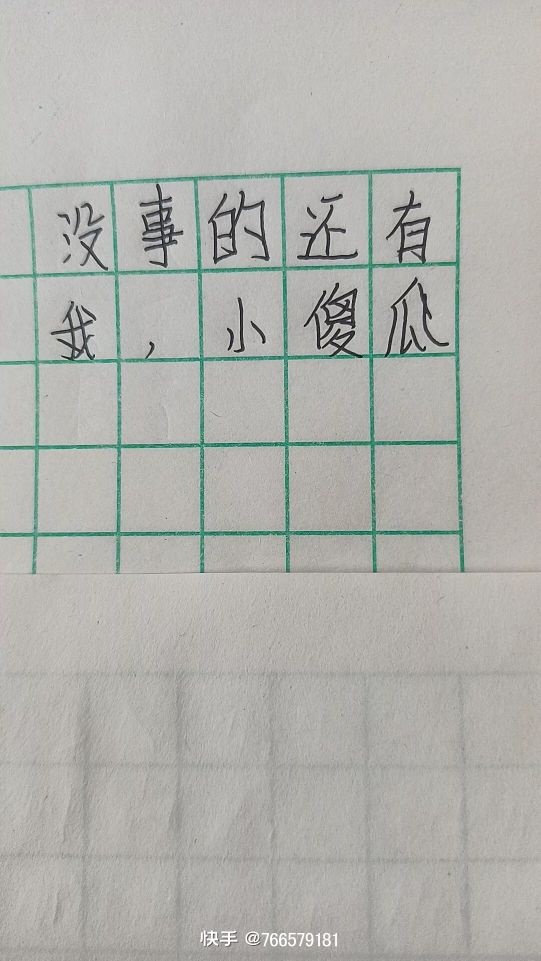 没事的还有
我，小傻瓜
快手 @766579181